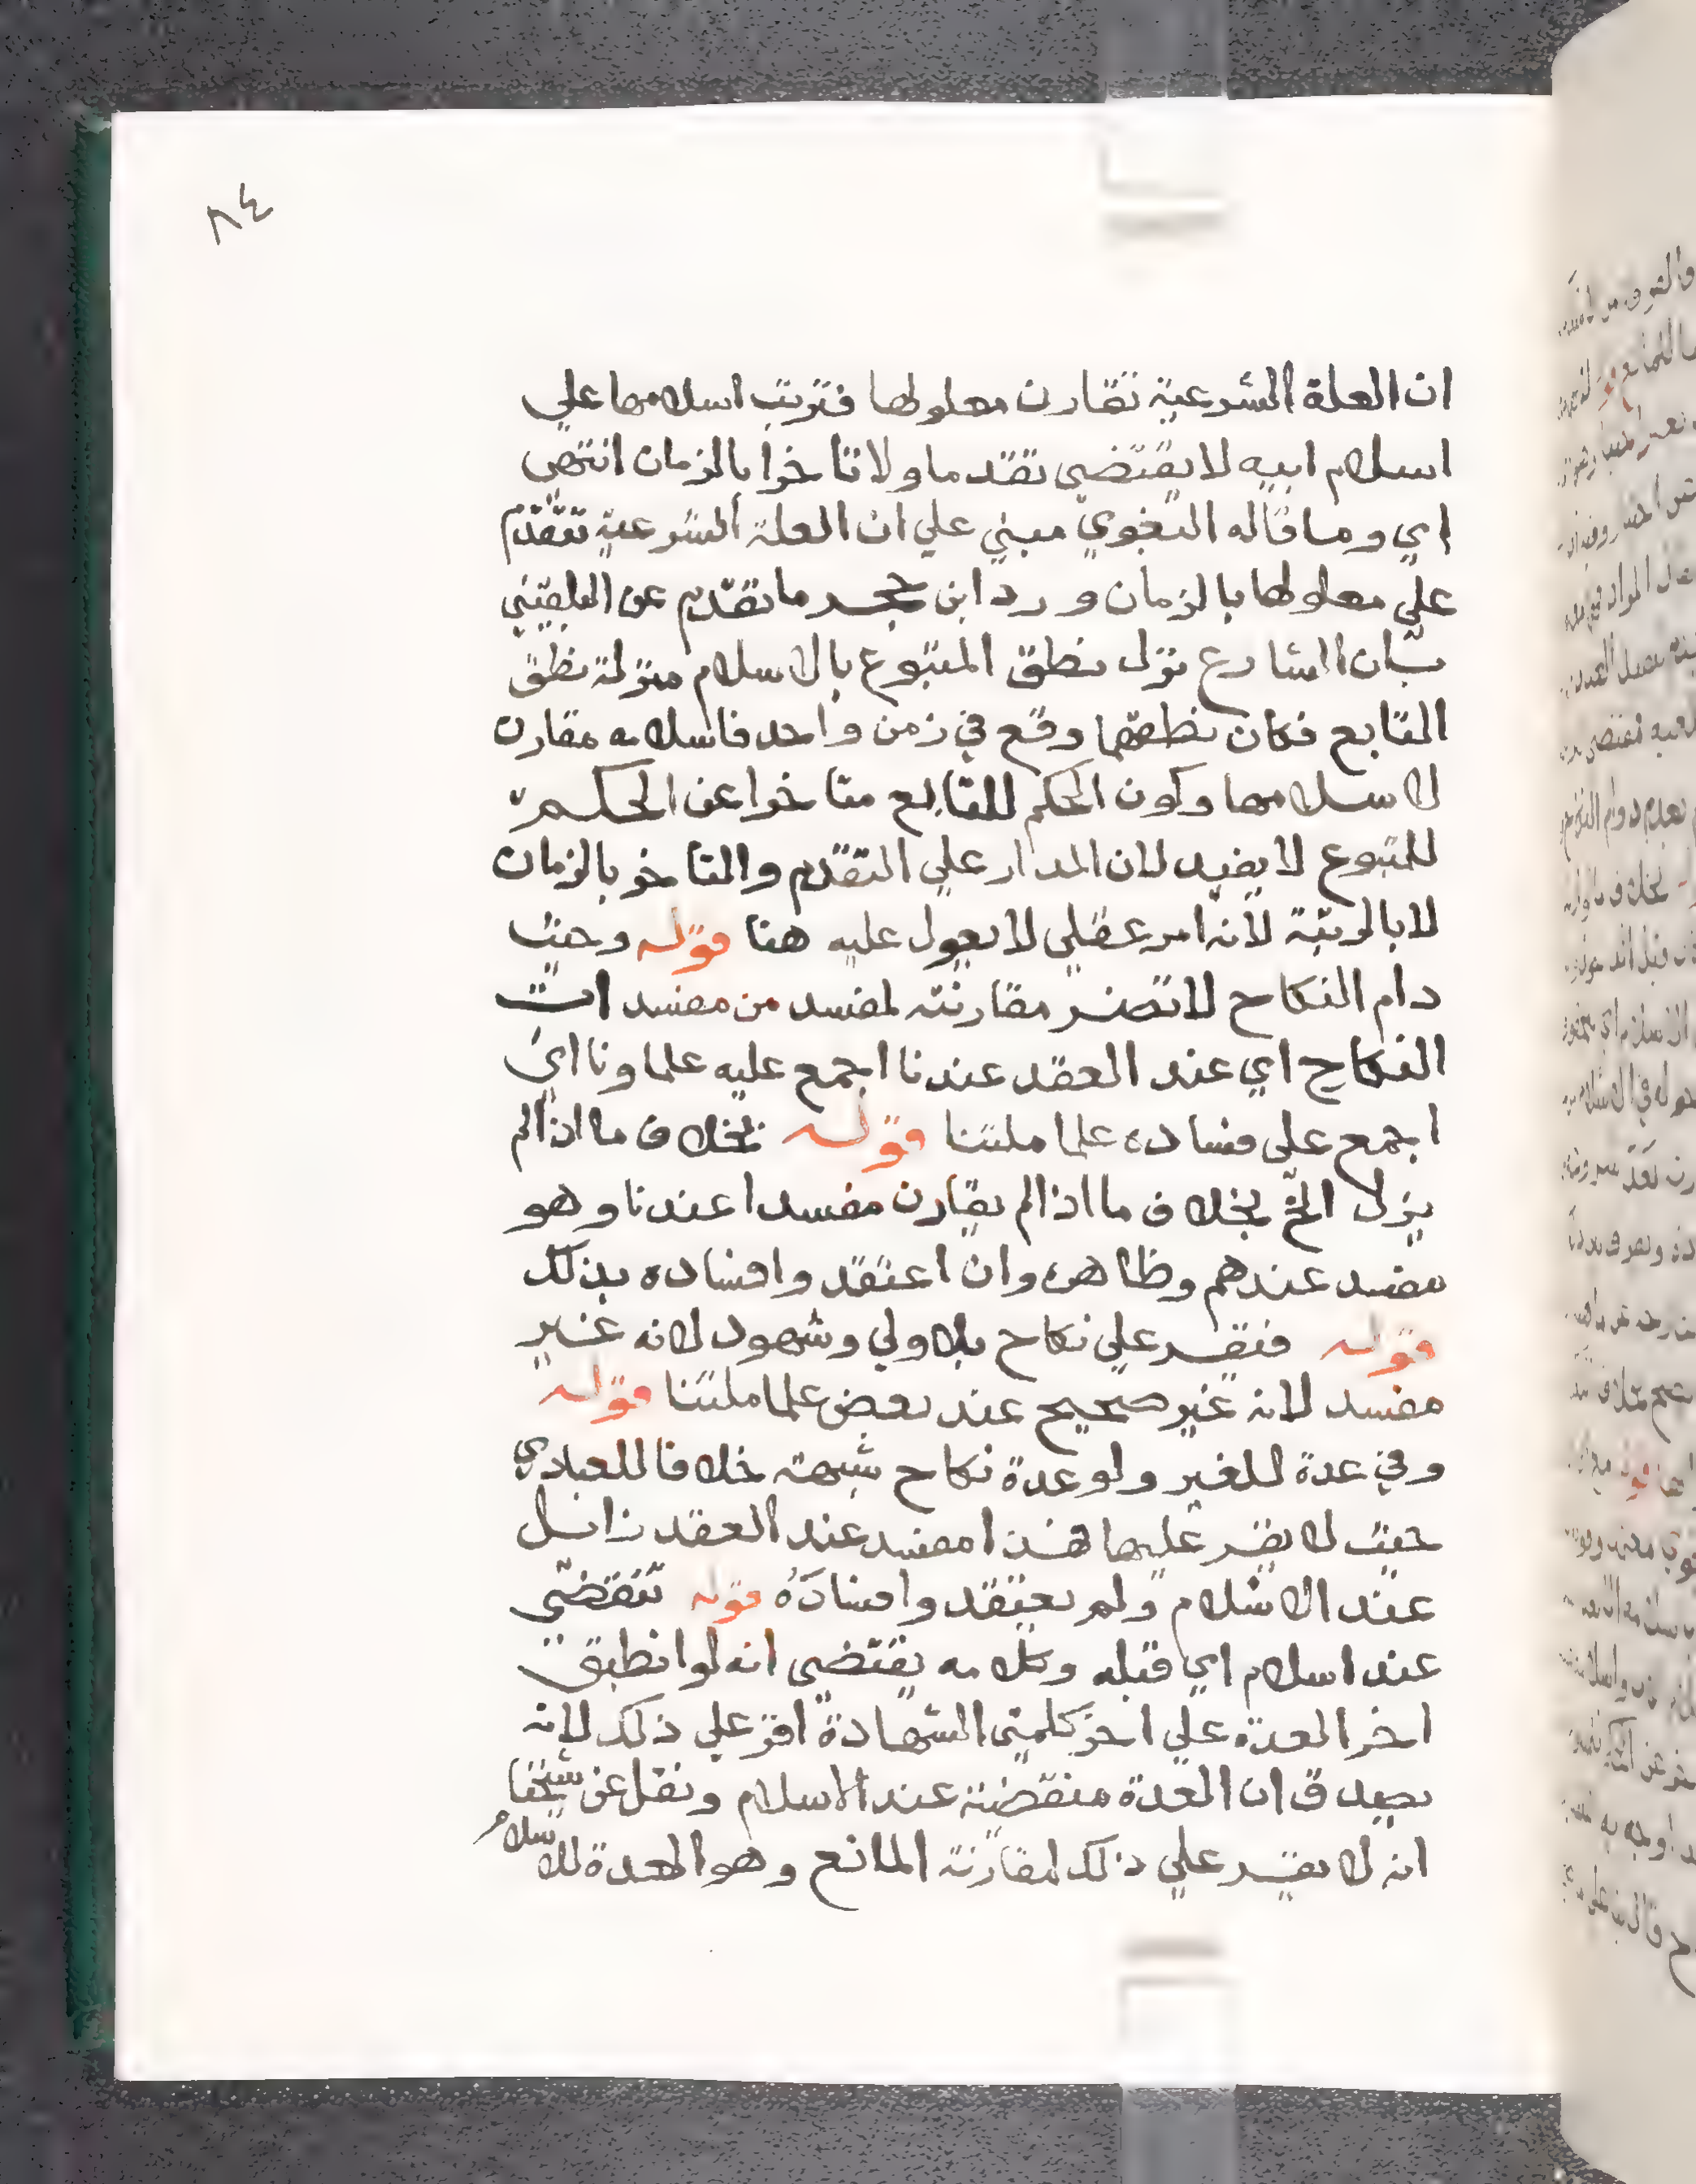 ٨٤
ان العلة الشرعية تقارن معلولها فترتب اسلامها علي
اسلام ابيه لا يقتضي تقدما ولا تاخرا بالزمان انتهى
اي وما قاله البغوي مبني علي ان العلة الشرعية تتقدم
علي معلولها بالزمان ورد ابن حجر ما تقدم عن البلقيني
بان الشارع نزل نطق المتبوع بالاسلام منزلة نطق
التابع فكان نطقهما وقع في زمن واحد فاسلامه مقارن
لاسلامها وكون الحكم للتابع متاخرا عن الحكم
للمتبوع لا يفيد لان المدار علي التقدم والتاخر بالزمان
لا بالرتبة لانه امر عقلي لا يعول عليه هنا قوله وحيث
دام النكاح لا تضر مقارنته لمفسد من مفسدات
النكاح اي عند العقد عندنا اجمع عليه علماونا اي
اجمع علي فساده علما ملتنا قوله بخلاف ما اذا لم
يزل الخ بخلاف ما اذا لم يقارن مفسدا عندنا وهو
مفسد عندهم وظاهره وان اعتقدوا فساده بذلك
قوله فنقر علي نكاح بلا ولي وشهود لانه غير
مفسد لانه غير صحيح عند بعض علما ملتنا قوله
وفي عدة للغير ولو عدة نكاح شبهة خلافا للعبادي
حيث لا يقر عليها هذا مفسد عند العقد زائل
عند الاسلام ولم يعتقدوا فساده قوله تنقضي
عند اسلام اي قبله وكلامه يقتضي انه لو انطبق
اخر العدة علي اخر كلمتي الشهادة اقر علي ذلك لانه
يصدق ان العدة منقضية عند الاسلام ونقل عن شيخنا
انه لا يقر علي ذلك لمقارنة المانع وهو العدة للاسلام